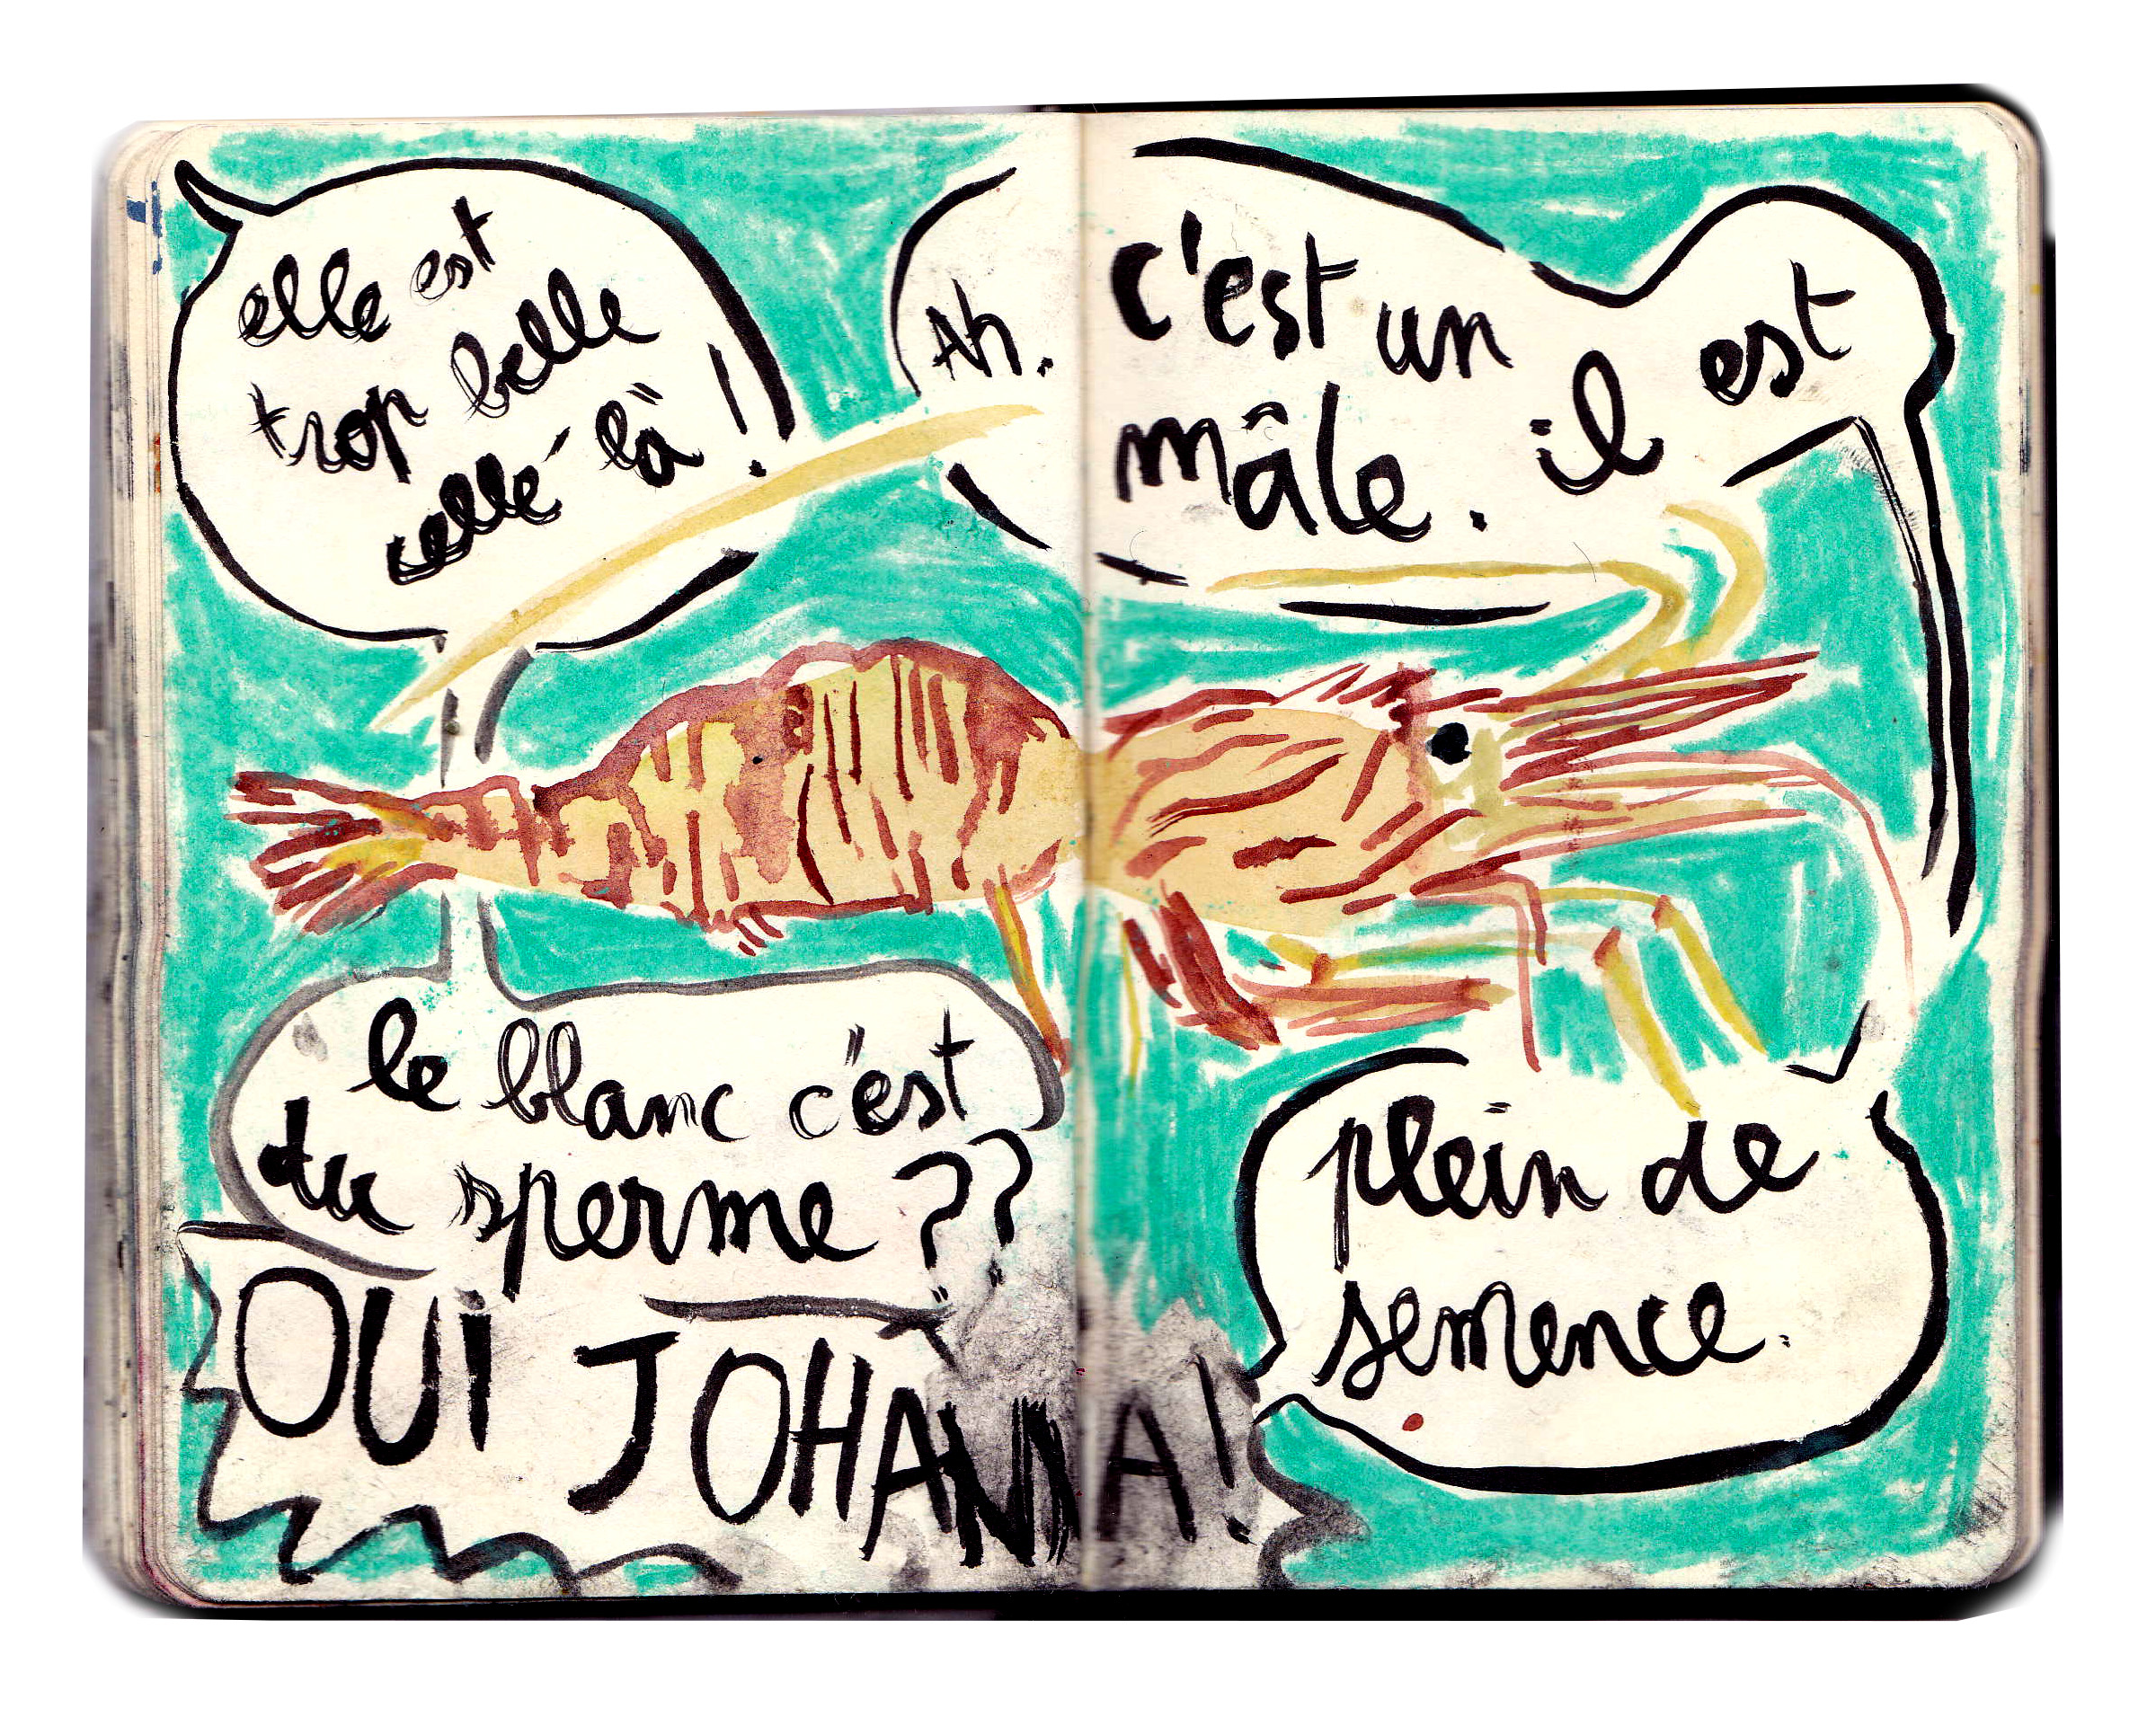 elle est
trop belle
celle là !
Ah. c'est un
mâle. il est
plein de
semence.
le blanc c'est
du sperme ??
OUI JOHANNA !